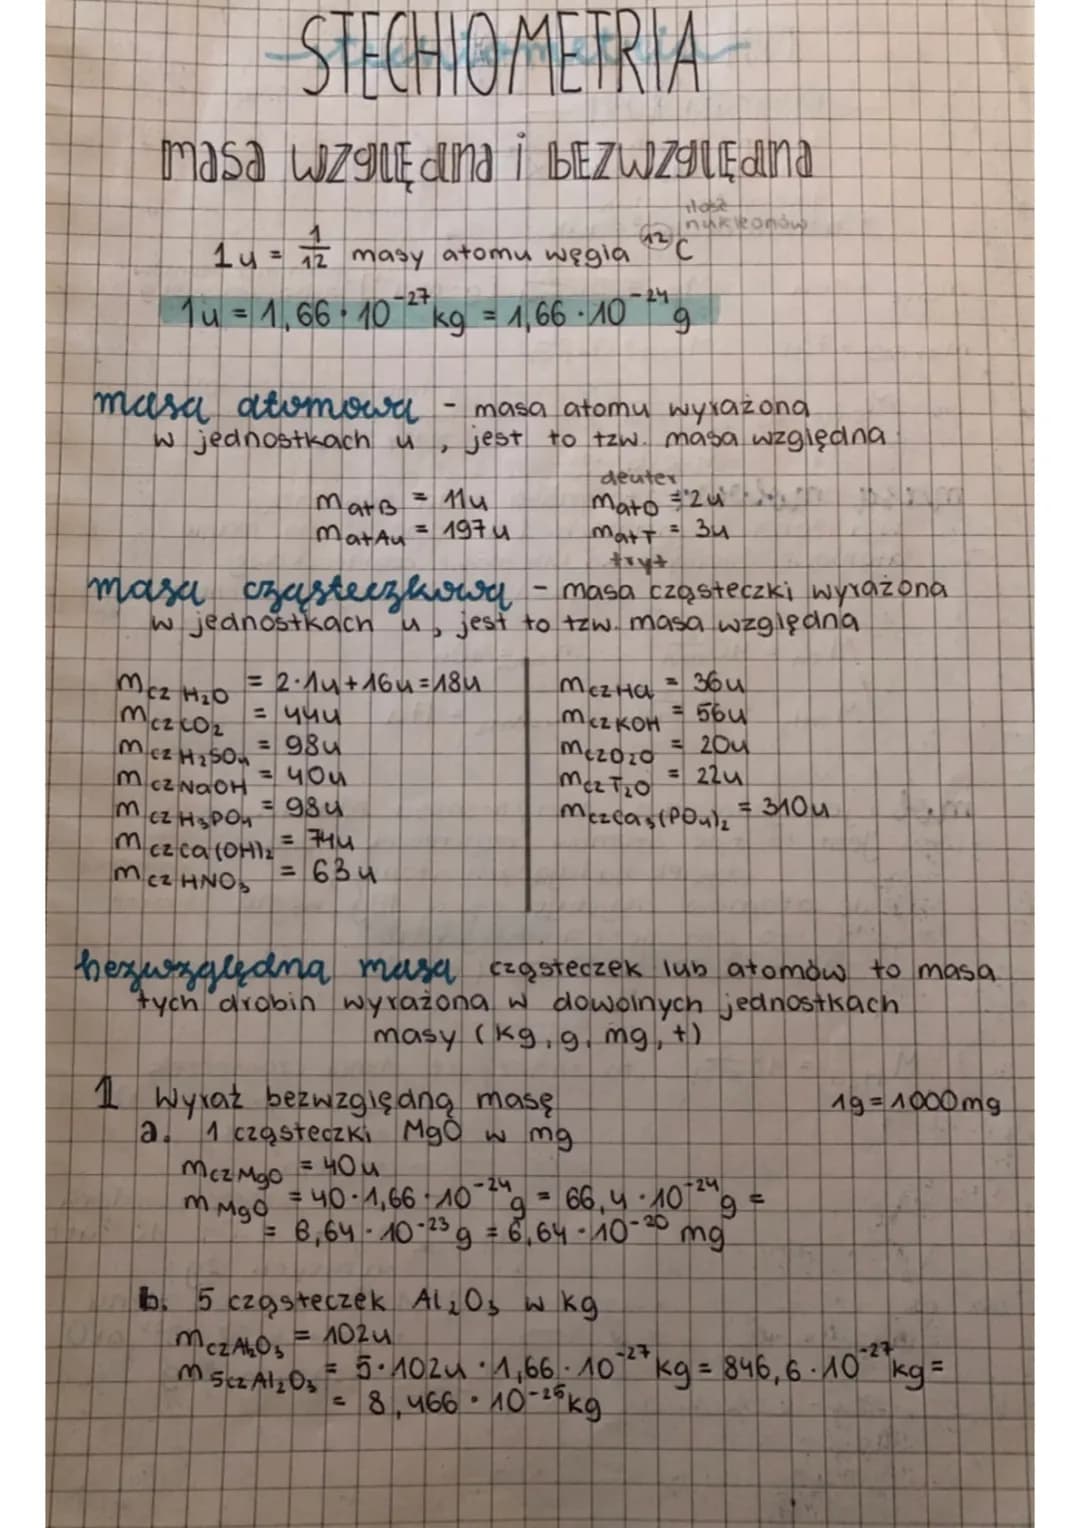 STECHIOMETRIA
masa wzglĘdna i bEzwzglĘdna
ilość
nukleonów
1u = 1/12 masy atomu węgla ¹²C
1u = 1,66 · 10⁻²⁷ kg = 1,66 · 10⁻²⁴ g
masa atomowa - masa atomu wyrażona
w jednostkach u, jest to tzw. masa względna
deuter
mat B = 11u mat D = 2u
mat Au = 197u mat T = 3u
tryt
masa cząsteczkowa - masa cząsteczki wyrażona
w jednostkach u, jest to tzw. masa względna
mcz H₂O = 2·1u+16u=18u mcz HCl = 36u
mcz CO₂ = 44u mcz KOH = 56u
mcz H₂SO₄ = 98u mcz D₂O = 20u
mcz NaOH = 40u mcz T₂O = 22u
mcz H₃PO₄ = 98u mcz Ca₃(PO₄)₂ = 310u
mcz Ca(OH)₂ = 74u
mcz HNO₃ = 63u
bezwzględna masa cząsteczek lub atomów to masa
tych drobin wyrażona w dowolnych jednostkach
masy (kg, g, mg, t)
1 Wyraź bezwzględną masę 1g = 1000mg
a. 1 cząsteczki MgO w mg
mcz MgO = 40u
m MgO = 40·1,66·10⁻²⁴ g = 66,4·10⁻²⁴ g =
= 6,64·10⁻²³ g = 6,64·10⁻²⁰ mg
b. 5 cząsteczek Al₂O₃ w kg
mcz Al₂O₃ = 102u
m 5cz Al₂O₃ = 5·102u·1,66·10⁻²⁷ kg = 846,6·10⁻²⁷ kg =
= 8,466·10⁻²⁵ kg